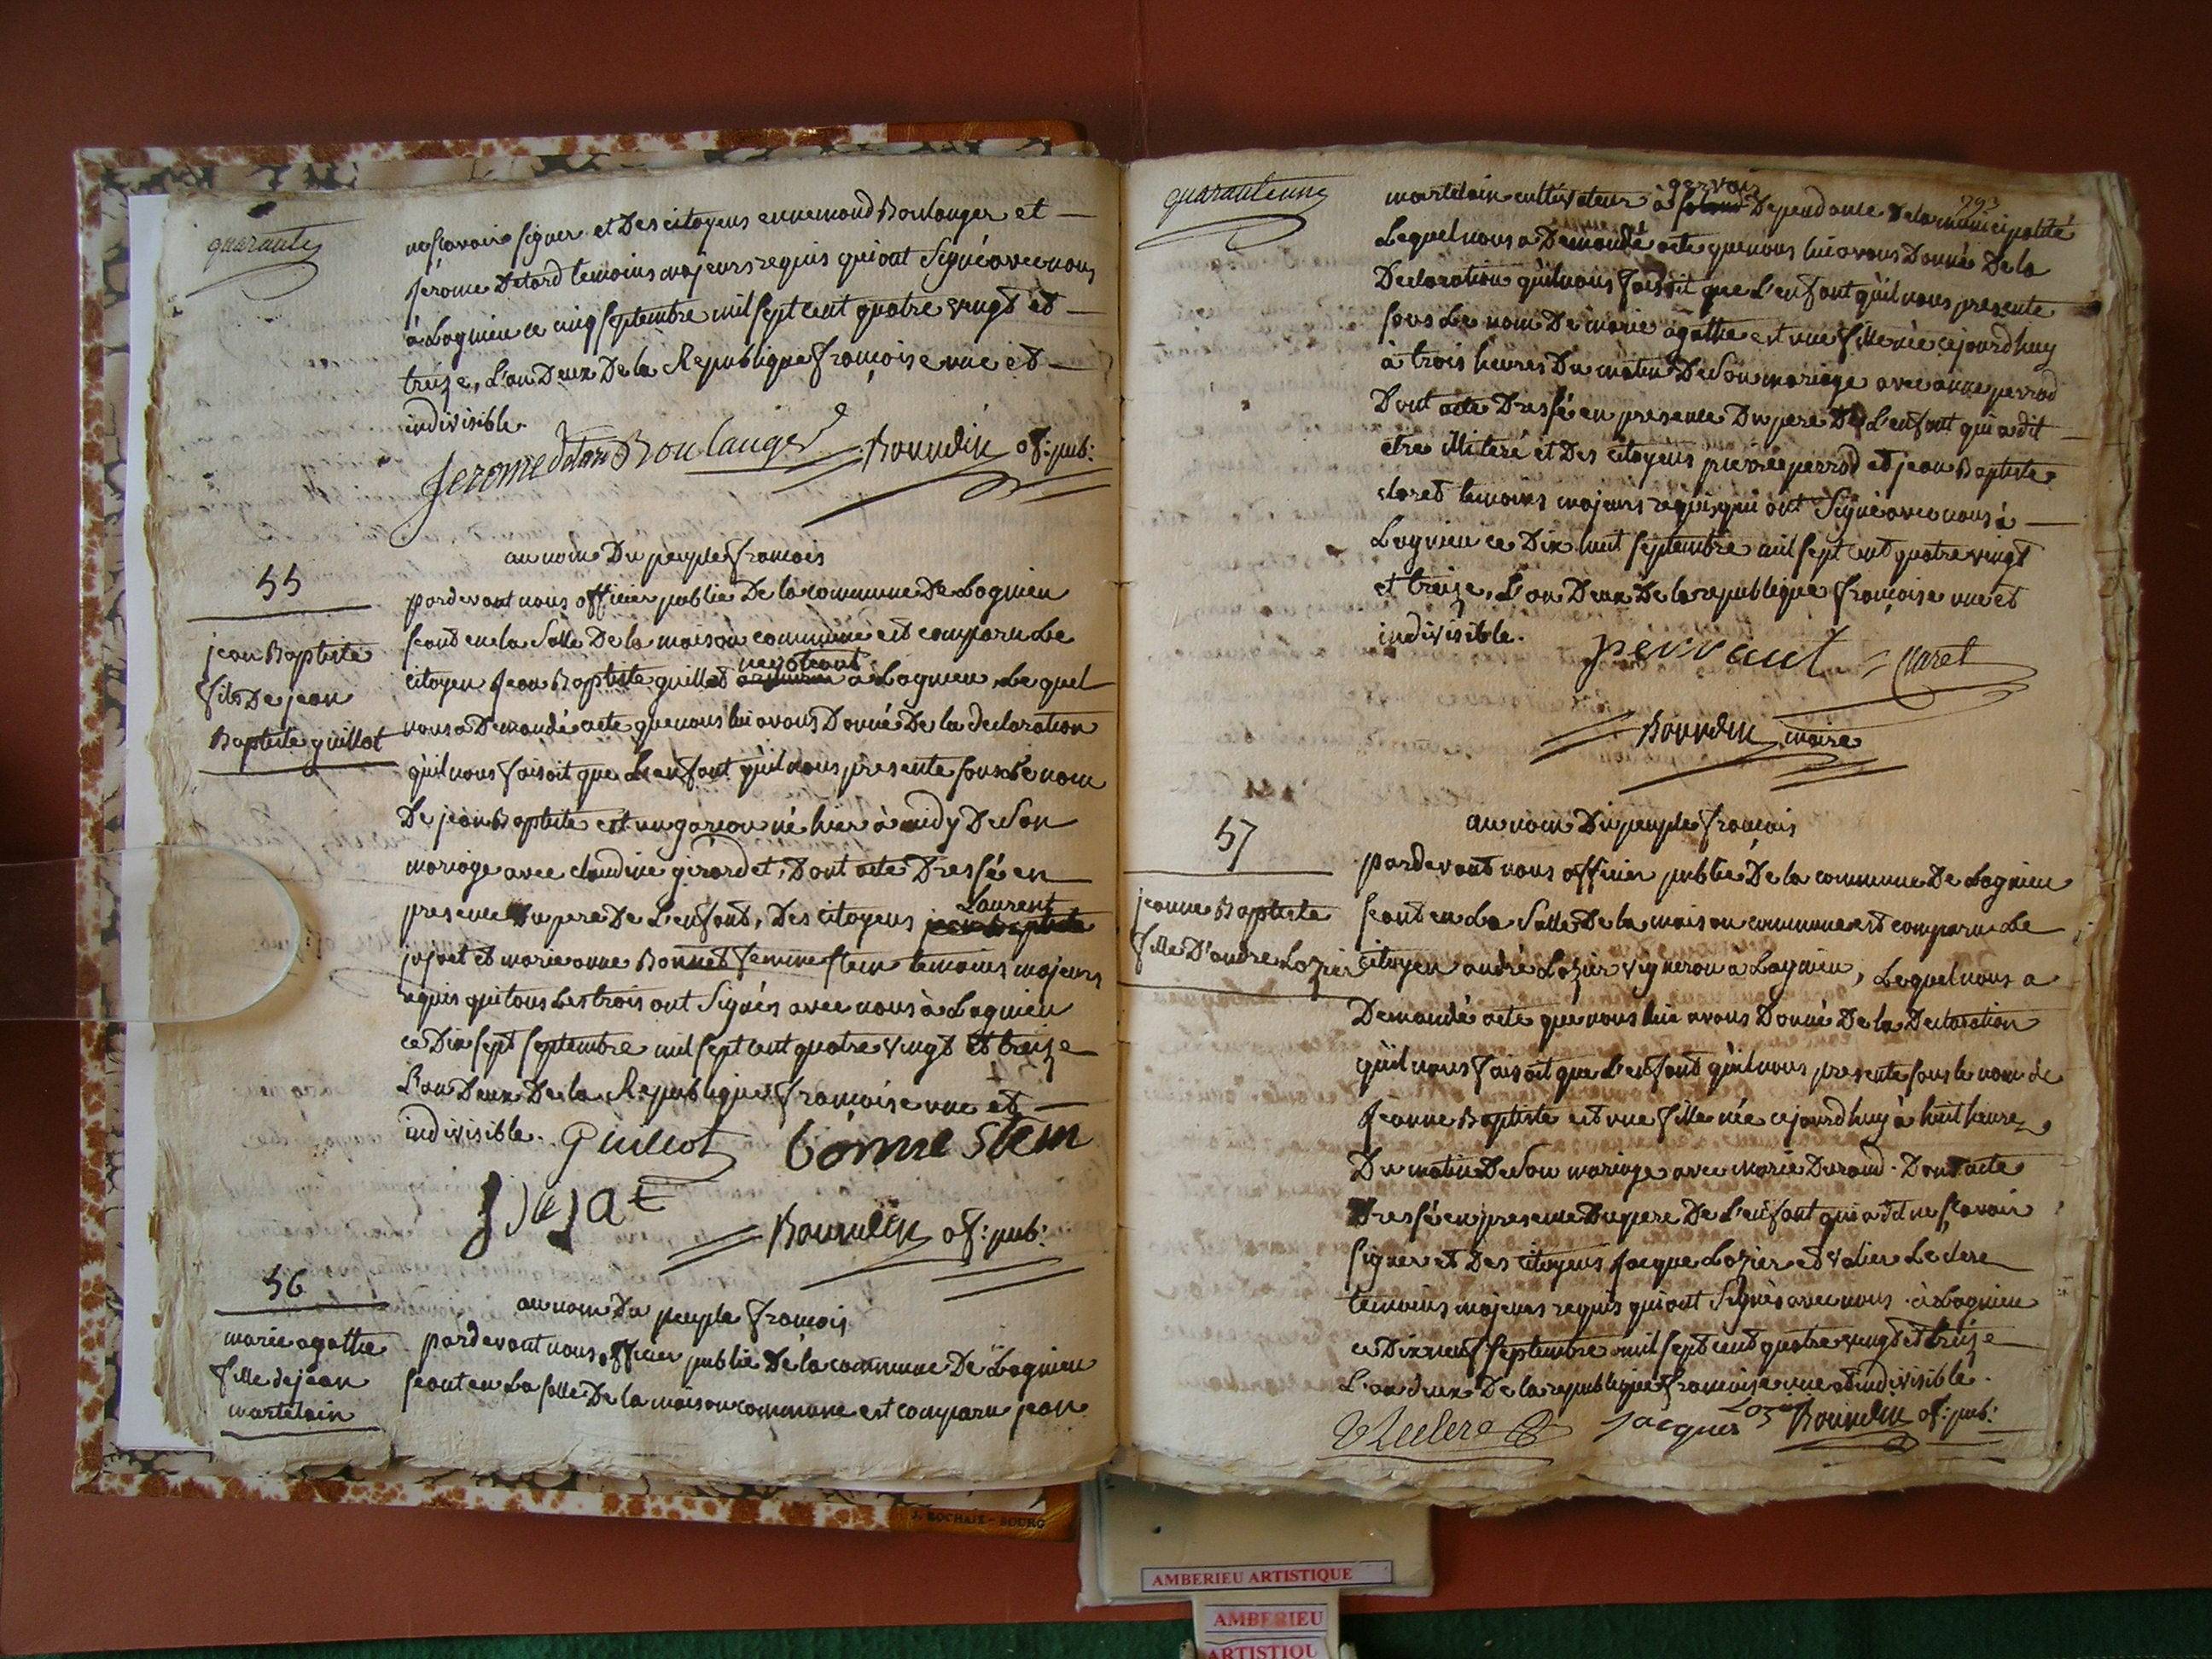 quarante
ne scavoir signer et Des citoyens ennemond Boulanger et
jérome Detard temoins majeurs requis qui ont Signé avec nous
à Lagnieu ce cinq septembre mil sept cent quatre vingt et
treize, L'an Deux De la Republique françoise une et
indivisible.
Jerome detard Boulanger Bourdin of: pub:
au nom Du peuple francois
55
jean Baptiste
fils De jean
Baptiste guillot
pardevant nous officier public De la commune De Lagnieu
seant en la Salle De la maison commune est comparu Le
negotiant
citoyen jean Baptiste guillot à Lagnieu, Lequel
nous a Demandé acte que nous lui avons Donné De la declaration
qu'il nous faisoit que L'enfant qu'il nous presente sous Le nom
De jean Baptiste est un garcon né hier à midy De Son
mariage avec claudine girardet, Dont acte Dressé en
Laurent
presence Du pere De L'enfant, Des citoyens jean baptiste
jujat et marie anne Bonnet femme stein temoins majeurs
requis qui tous Les trois ont Signés avec nous à Lagnieu
ce Dix sept septembre mil sept cent quatre vingt et treize
L'an Deux De la Republique françoise une et
indivisible. Guillot bonne Stein
jujat
Bourdin of: pub:
56
marie agathe
fille de jean
martelain
au nom Du peuple francois
pardevant nous officier public De la commune De Lagnieu
seant en La salle De la maison commune est comparu jean
quarante une
1793
gervais
martelain cultivateur à Dependance De la municipalité
Lequel nous a Demandé acte que nous lui avons Donné De la
Declaration qu'il nous faisoit que L'enfant qu'il nous presente
sous Le nom De marie agathe est une fille née cejourdhuy
à trois heures Du matin De Son mariage avec anne perrod
Dont acte Dressé en presence Du pere De L'enfant qui a dit
etre illiteré et Des citoyens pierre perrod et jean Baptiste
claret temoins majeurs requis qui ont Signé avec nous à
Lagnieu ce Dix huit septembre mil sept cent quatre vingt
et treize, L'an Deux De la republique françoise une et
indivisible. perraut Claret
Bourdin maire
au nom Du peuple francois
57
jeanne Baptiste
fille D'andre Lozier
pardevant nous officier public De la commune De Lagnieu
seant en La Salle De la maison commune est comparu Le
citoyen andré Lozier vigneron a Lagnieu, Lequel nous a
Demandé acte que nous lui avons Donné De la Declaration
qu'il nous faisoit que L'enfant qu'il nous presente sous le nom de
Jeanne Baptiste est une fille née cejourdhuy à huit heures
Du matin De Son mariage avec marie Durand. Dont acte
Dressé en presence Du pere De L'enfant qui a dit ne scavoir
signer et Des citoyens jacque Lozier et valier Leclerc
temoins majeurs requis qui ont Signés avec nous à Lagnieu
ce Dix neuf septembre mil sept cent quatre vingt et treize
L'an deux De la republique francoise une et indivisible.
V Leclerc jacques Lozier Bourdin of: pub:
J. ROCHAIX - BOURG
AMBERIEU ARTISTIQUE
AMBERIEU
ARTISTIQU